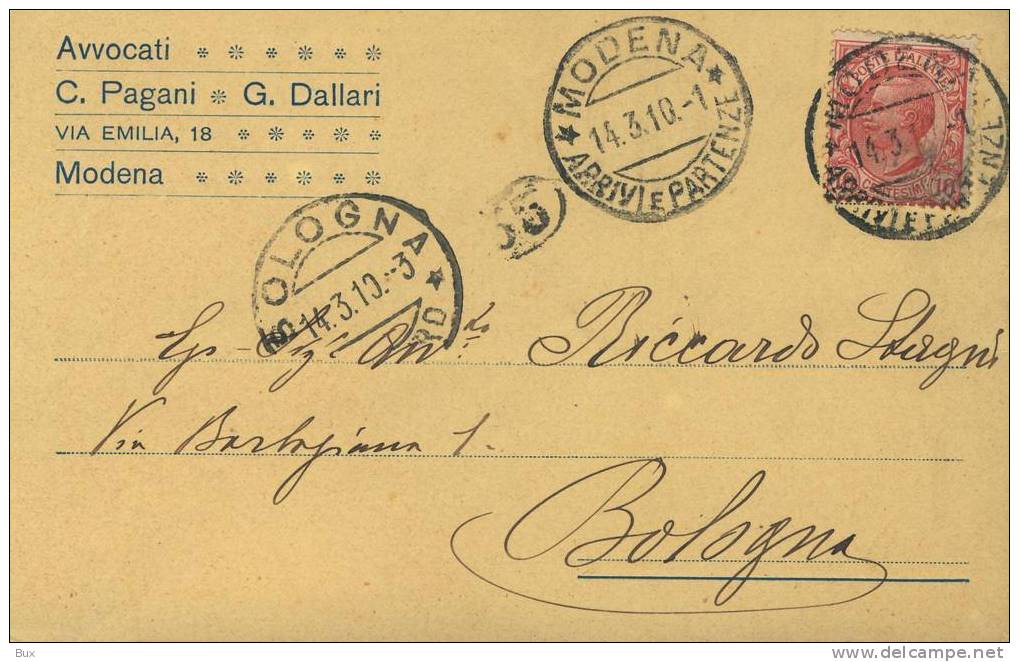 Avvocati
C. Pagani * G. Dallari
VIA EMILIA, 18
Modena
MODENA
14.3.10.-1
ARRIVI E PARTENZE
POSTE ITALIANE
14.3.1
ARRIVI E PA NZE
BOLOGNA
14.3.10.-3
Riccardo Stagni
Via 1.
Bologna
Bux
www.delcampe.net